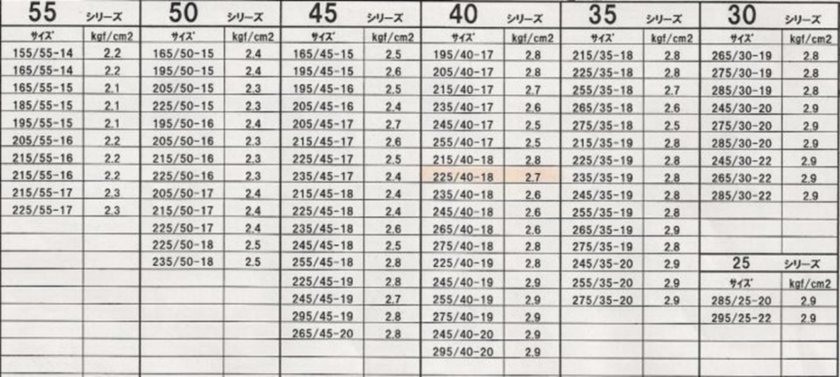 55 シリーズ 50 シリーズ 45 シリーズ 40 シリーズ 35 シリーズ 30 シリーズ
サイズ kgf/cm2 サイズ kgf/cm2 サイズ kgf/cm2 サイズ kgf/cm2 サイズ kgf/cm2 サイズ kgf/cm2
155/55-14 2.2 165/50-15 2.4 165/45-15 2.5 195/40-17 2.8 215/35-18 2.8 265/30-19 2.8
165/55-14 2.2 195/50-15 2.4 195/45-15 2.6 205/40-17 2.8 225/35-18 2.8 275/30-19 2.8
165/55-15 2.1 205/50-15 2.3 195/45-16 2.5 215/40-17 2.7 255/35-18 2.7 285/30-19 2.8
185/55-15 2.1 225/50-15 2.3 205/45-16 2.4 235/40-17 2.6 265/35-18 2.6 245/30-20 2.9
195/55-15 2.1 195/50-16 2.4 205/45-17 2.7 245/40-17 2.5 275/35-18 2.5 275/30-20 2.9
205/55-16 2.2 205/50-16 2.3 215/45-17 2.6 255/40-17 2.5 215/35-19 2.8 285/30-20 2.9
215/55-16 2.2 215/50-16 2.3 225/45-17 2.5 215/40-18 2.8 225/35-19 2.8 245/30-22 2.9
215/55-16 2.2 225/50-16 2.3 235/45-17 2.4 225/40-18 2.7 235/35-19 2.8 265/30-22 2.9
215/55-17 2.3 205/50-17 2.4 215/45-18 2.4 235/40-18 2.6 245/35-19 2.8 285/30-22 2.9
225/55-17 2.3 215/50-17 2.4 225/45-18 2.4 245/40-18 2.6 255/35-19 2.8
225/50-17 2.4 235/45-18 2.6 265/40-18 2.6 265/35-19 2.9
225/50-18 2.5 245/45-18 2.5 275/40-18 2.8 275/35-19 2.8
235/50-18 2.5 255/45-18 2.8 225/40-19 2.8 245/35-20 2.9 25 シリーズ
225/45-19 2.8 245/40-19 2.9 255/35-20 2.9 サイズ kgf/cm2
245/45-19 2.7 255/40-19 2.9 275/35-20 2.9 285/25-20 2.9
295/45-19 2.8 275/40-19 2.9 295/25-22 2.9
265/45-20 2.8 245/40-20 2.9
295/40-20 2.9